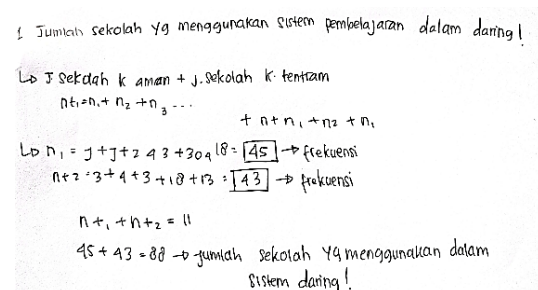 1 Jumlah sekolah yg menggunakan sistem pembelajaran dalam daring!
↳ J sekolah k aman + J. sekolah k. tentram
nt₁=n₁+ n₂ +n₃ ...
+ n+n₁ +n₂ +n₁
↳ n₁ = J+J+2 4 3 +304 18 = 45 → frekuensi
n+2 = 3+4+3+18+13 = 43 → frekuensi
n+₁ +n+₂ = 11
45 + 43 = 88 → jumlah sekolah yg menggunakan dalam
sistem daring!